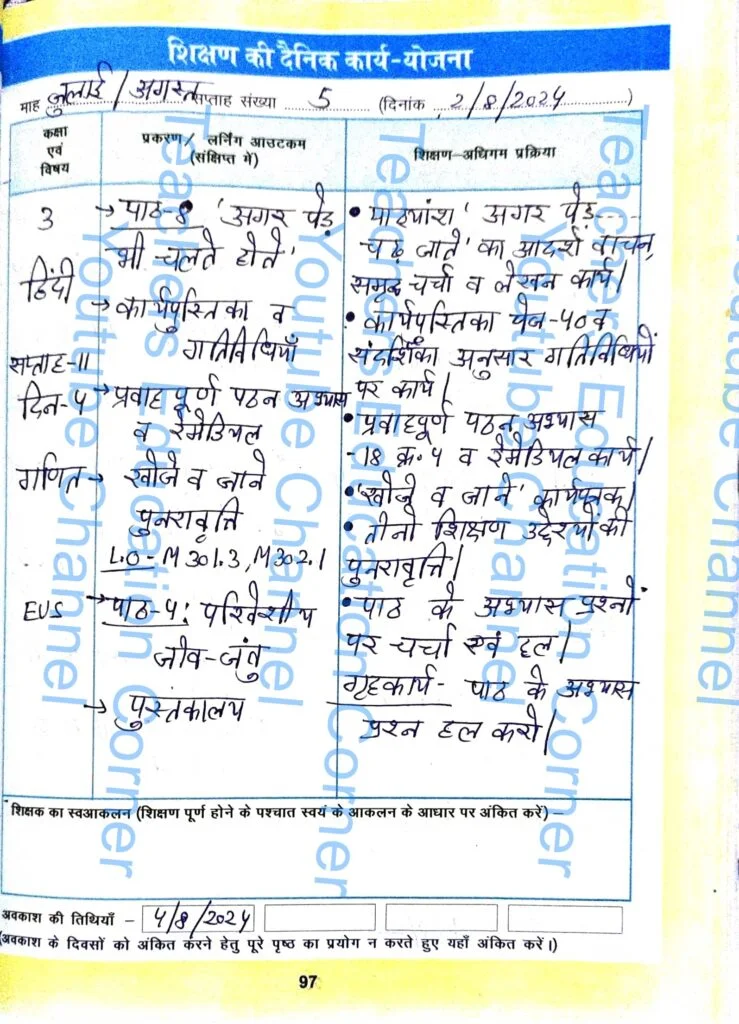 शिक्षण की दैनिक कार्य-योजना
माह जुलाई / अगस्त सप्ताह संख्या 5 (दिनांक 2/8/2024)
कक्षा एवं विषय
प्रकरण / लर्निंग आउटकम (संक्षिप्त में)
शिक्षण-अधिगम प्रक्रिया
3
हिंदी
सप्ताह-11
दिन-4
→ पाठ-8 'अगर पेड़
भी चलते होते'
→ कार्यपुस्तिका व
गतिविधियाँ
→ प्रवाहपूर्ण पठन अभ्यास
व रेमेडियल
• पाठ्यांश 'अगर पेड़----
चढ़ जाते' का आदर्श वाचन,
समूह चर्चा व लेखन कार्य।
• कार्यपुस्तिका पेज-40 व
संदर्शिका अनुसार गतिविधियों
पर कार्य।
• प्रवाहपूर्ण पठन अभ्यास
-18 क्र. 4 व रेमेडियल कार्य।
गणित
→ खोजे व जाने
पुनरावृत्ति
L.O - M 301.3, M302.1
• 'खोजे व जाने' कार्यपत्रक।
• तीनो शिक्षण उद्देश्यों की
पुनरावृत्ति।
EVS
→ पाठ-4: परिवेशीय
जीव-जंतु
→ पुस्तकालय
• पाठ के अभ्यास प्रश्नों
पर चर्चा एवं हल।
गृहकार्य- पाठ के अभ्यास
प्रश्न हल करो।
शिक्षक का स्वआकलन (शिक्षण पूर्ण होने के पश्चात स्वयं के आकलन के आधार पर अंकित करें) –
अवकाश की तिथियाँ – 4/8/2024
(अवकाश के दिवसों को अंकित करने हेतु पूरे पृष्ठ का प्रयोग न करते हुए यहाँ अंकित करें।)
97
Teachers Education Corner
Youtube Channel
Teachers Education Corner
Youtube Channel
Teachers Education Corner
Youtube Channel